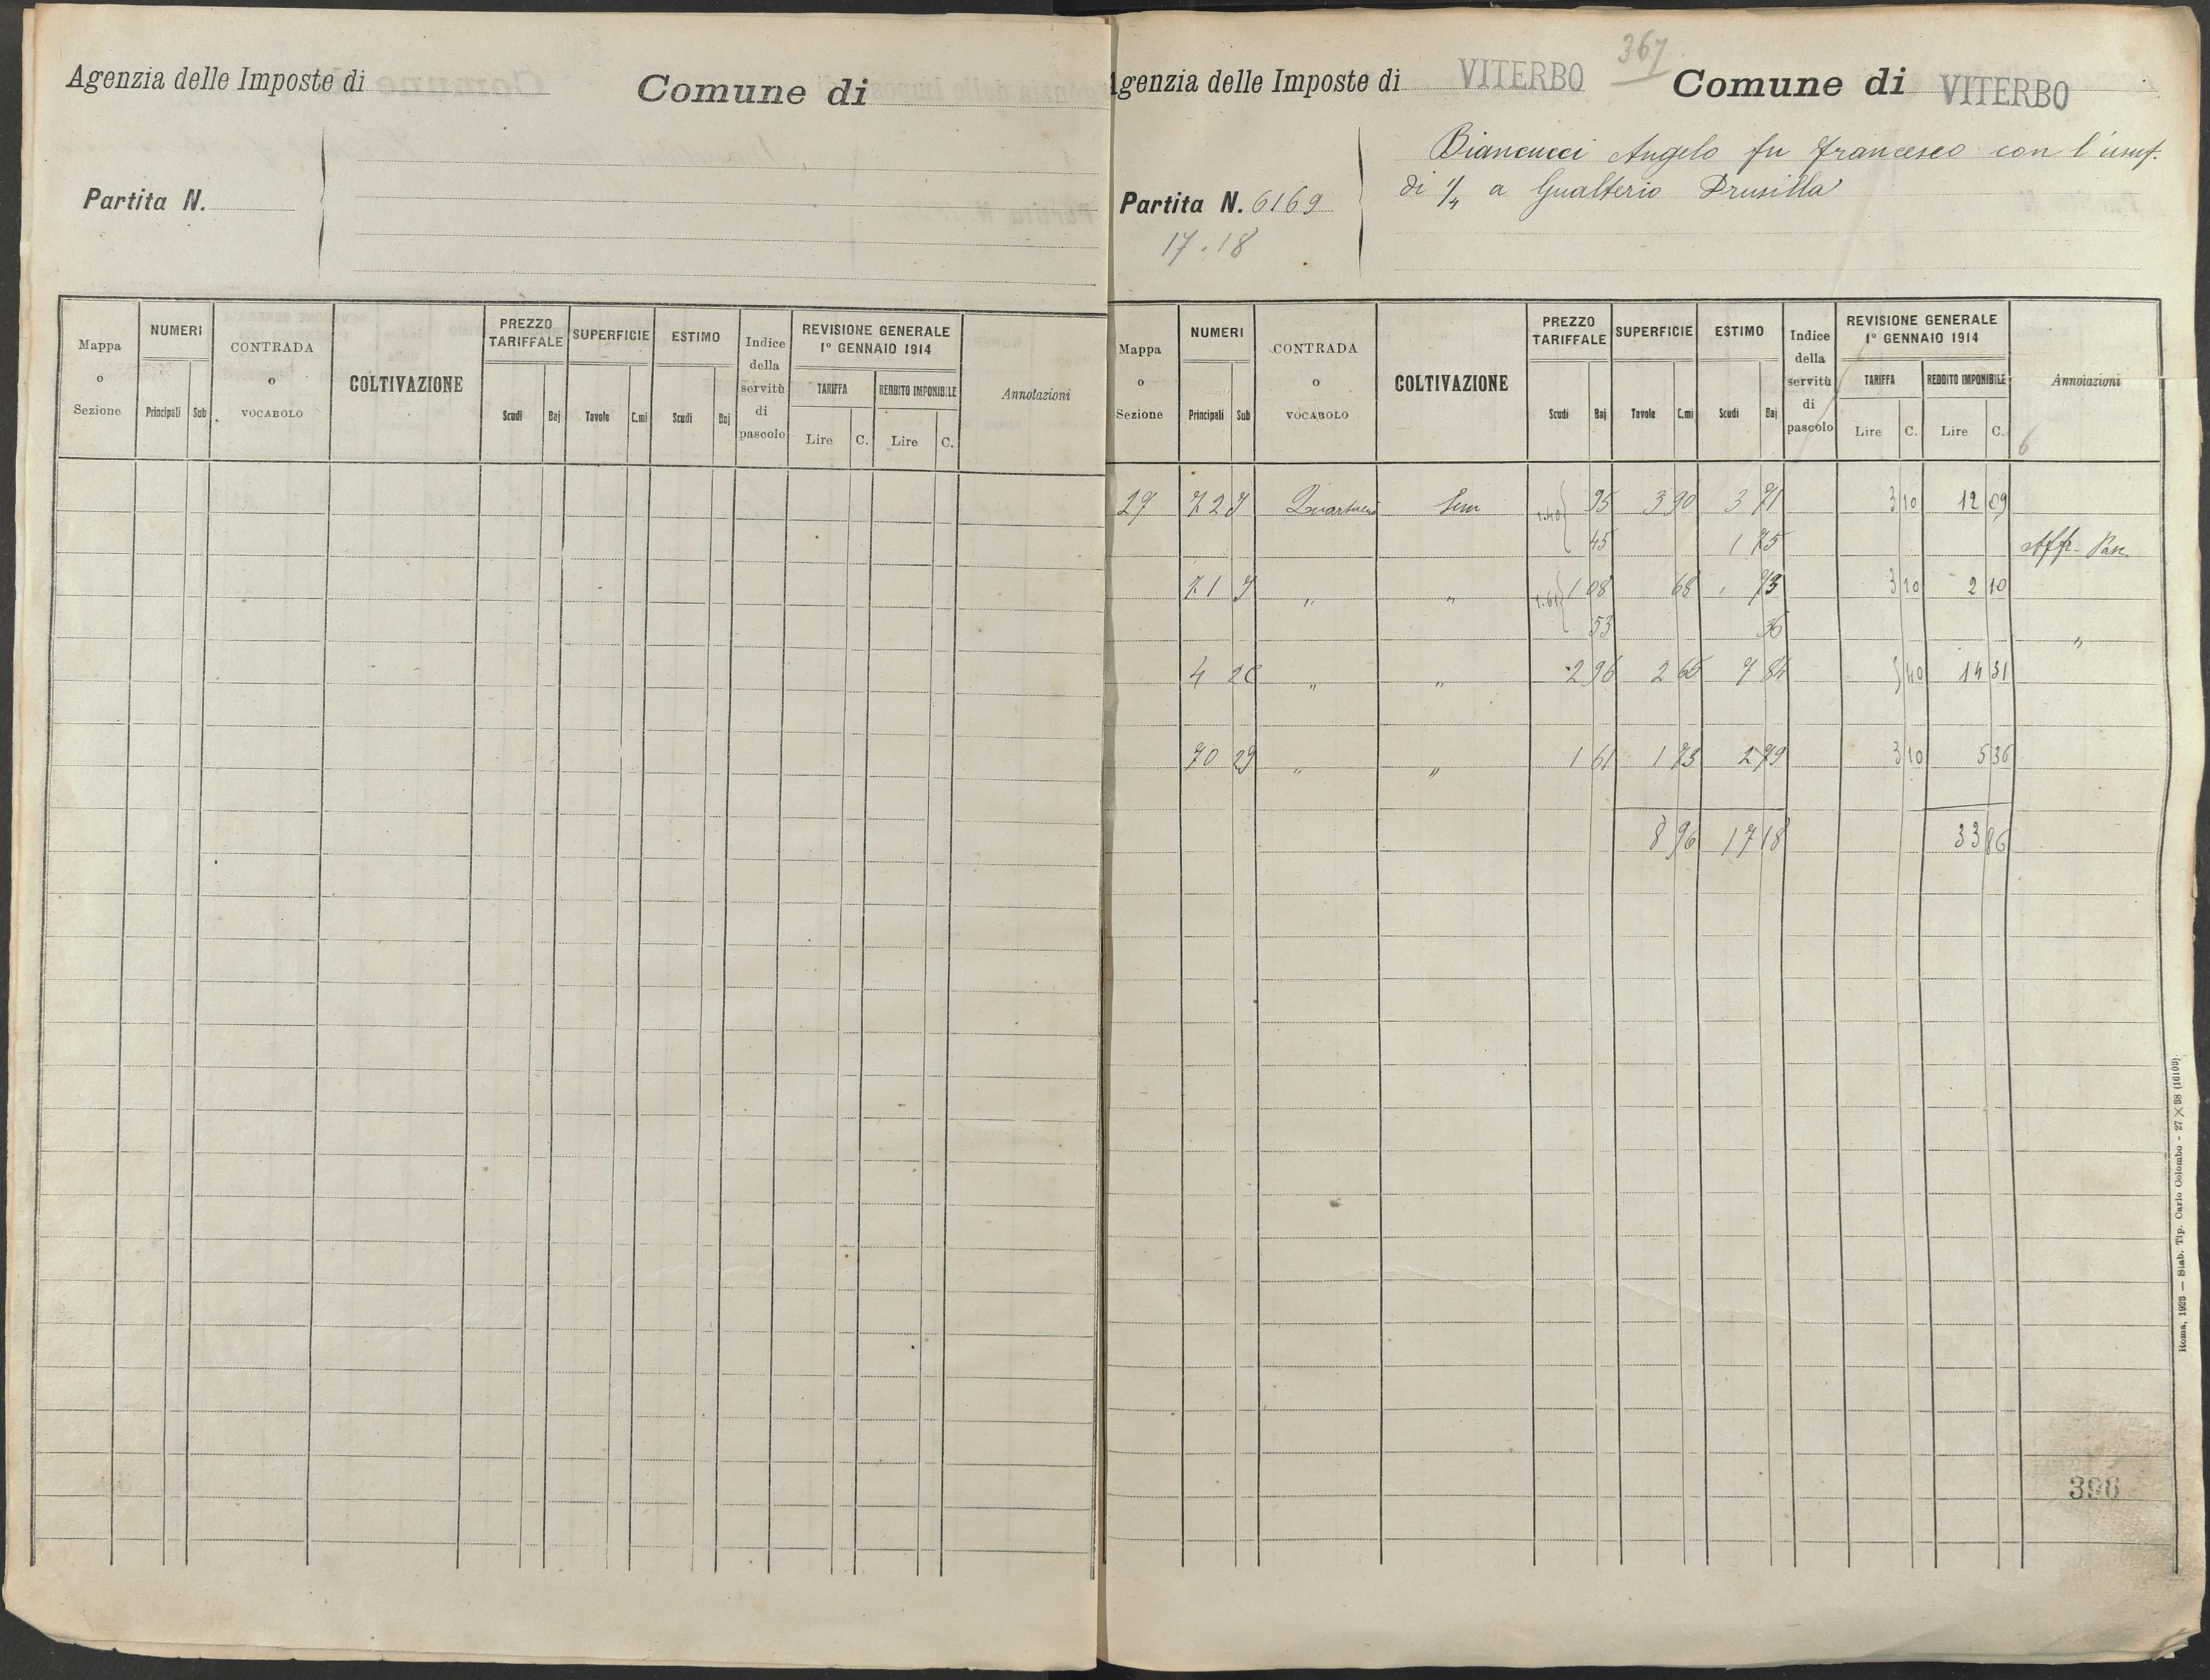 Agenzia delle Imposte di
Comune di
Partita N.
Mappa o Sezione
NUMERI
Principali Sub
CONTRADA o VOCABOLO
COLTIVAZIONE
PREZZO TARIFFALE
Scudi Baj
SUPERFICIE
Tavole C.mi
ESTIMO
Scudi Baj
Indice della servitù di pascolo
REVISIONE GENERALE
1° GENNAIO 1914
TARIFFA
Lire C.
REDDITO IMPONIBILE
Lire C.
Annotazioni
367
Agenzia delle Imposte di VITERBO
Comune di VITERBO
Biancucci Angelo fu Francesco con l'usuf.
di 1/4 a Gualterio Drusilla
Partita N. 6169
17.18
Mappa o Sezione
NUMERI
Principali Sub
CONTRADA o VOCABOLO
COLTIVAZIONE
PREZZO TARIFFALE
Scudi Baj
SUPERFICIE
Tavole C.mi
ESTIMO
Scudi Baj
Indice della servitù di pascolo
REVISIONE GENERALE
1° GENNAIO 1914
TARIFFA
Lire C.
REDDITO IMPONIBILE
Lire C.
Annotazioni
6
29 Sem 1.40 95 3 90 3 71 3 10 12 09
45 1 75 Affr. Pasc.
" " 1.61 1 08 68 73 3 10 2 10
53 36 "
4 " " 2 96 2 65 7 84 5 40 14 31
70 29 " " 1 61 1 73 2 79 3 10 5 36
8 96 17 18 33 86
396
Roma, 1923 — Stab. Tip. Carlo Colombo - 27 × 38 (16103).